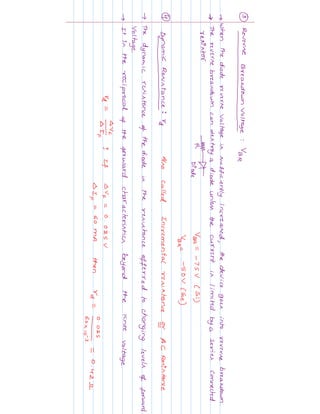 ③ Reverse Breakdown Voltage : V_BR
→ When the diode reverse voltage is sufficiently increased, the device goes into reverse breakdown.
→ The reverse breakdown can destroy a diode unless the current is limited by a series connected
resistor
R
Diode
V_BR = -75V (Si)
V_BR = -50V (Ge)
④ Dynamic Resistance : r_d Also called Incremental resistance or AC resistance
→ The dynamic resistance of the diode is the resistance offered to changing levels of forward
voltage
→ It is the reciprocal of the forward characteristics beyond the knee voltage
r_d = ΔV_F / ΔI_F ; If ΔV_F = 0.025V
ΔI_F = 60 mA then r_d = 0.025 / 60×10⁻³ = 0.42 Ω